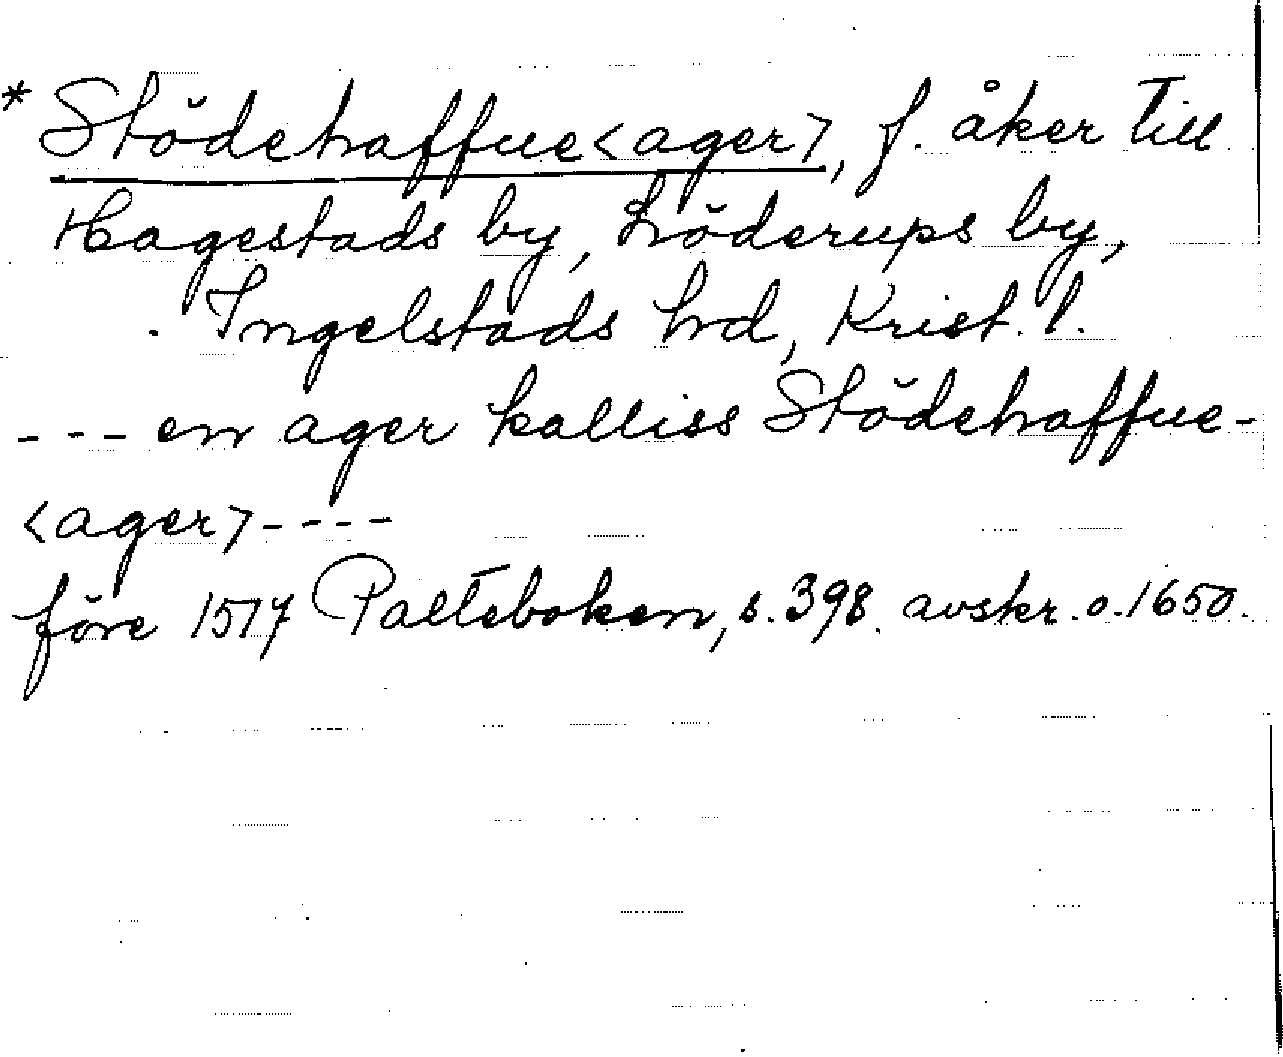 * Stödehaffue<ager>, f. åker till
Hagestads by, Löderups by,
Ingelstads hd, Krist. l.
--- en ager kalliss Stödehaffue-
<ager>----
före 1517 Palteboken, s. 398. avskr. o. 1650.